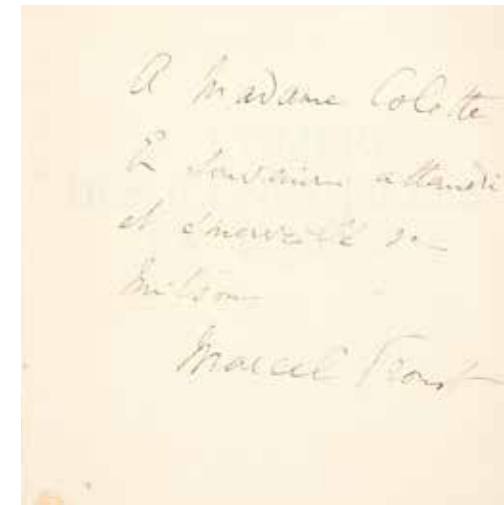 A Madame Colette
En souvenir attendri
et émerveillé de
Mitsou
Marcel Proust